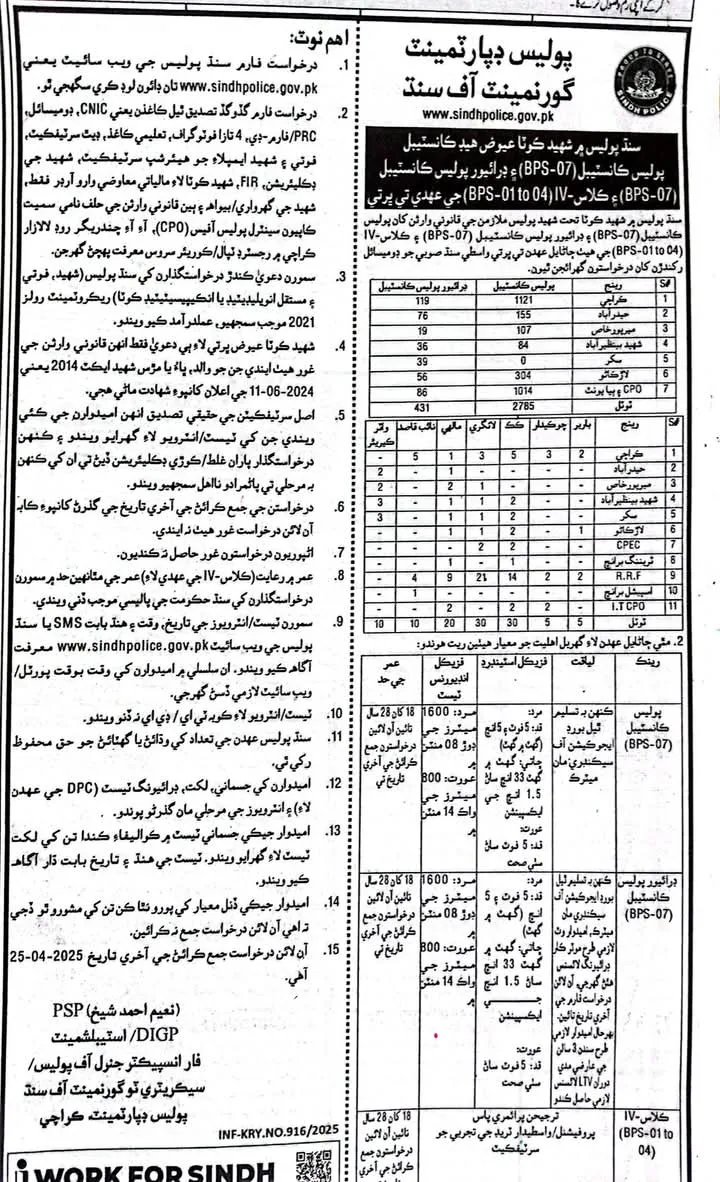 پوليس ڊپارٽمينٽ
گورنمينٽ آف سنڌ
www.sindhpolice.gov.pk
PROUD TO SERVE
SINDH POLICE
سنڌ پوليس ۾ شهيد ڪوٽا عيوض هيڊ ڪانسٽيبل
پوليس ڪانسٽيبل (BPS-07) ۽ ڊرائيور پوليس ڪانسٽيبل
(BPS-07) ۽ ڪلاس-IV (BPS-01 to 04) جي عهدي تي ڀرتي
سنڌ پوليس ۾ شهيد ڪوٽا تحت شهيد پوليس ملازمن جي قانوني وارثن کان پوليس
ڪانسٽيبل (BPS-07) ۽ ڊرائيور پوليس ڪانسٽيبل (BPS-07) ۽ ڪلاس-IV
(BPS-01 to 04) جي هيٺ ڄاڻايل عهدن تي ڀرتي واسطي سنڌ صوبي جو ڊوميسائل
رکندڙن کان درخواستون گهرائجن ٿيون.
S# رينج پوليس ڪانسٽيبل ڊرائيور پوليس ڪانسٽيبل
1 ڪراچي 1121 119
2 حيدرآباد 155 76
3 ميرپورخاص 107 19
4 شهيد بينظيرآباد 84 36
5 سکر 0 39
6 لاڙڪاڻو 304 56
7 CPO ۽ ٻيا يونٽ 1014 86
ٽوٽل 2785 431
S# رينج باربر چوڪيدار ڪڪ لانگري مالهي نائب قاصد واٽر ڪيريئر
1 ڪراچي 2 3 5 3 1 5 -
2 حيدرآباد - - - - 1 - 2
3 ميرپورخاص - - - 1 2 - 2
4 شهيد بينظيرآباد - - 2 1 1 - 3
5 سکر - - 2 1 1 - 3
6 لاڙڪاڻو 1 - 2 1 1 - -
7 CPEC - - 2 2 - - -
8 ٽريننگ برانچ - - 1 - 1 - -
9 R.R.F 2 2 14 21 9 4 -
10 اسپيشل برانچ - - - - - 1 -
11 I.T CPO - 2 2 - 2 - -
ٽوٽل 5 5 30 30 20 10 10
2. مٿي ڄاڻايل عهدن لاءِ گهربل اهليت جو معيار هيٺين ريت هوندو:
رينڪ لياقت فزيڪل اسٽينڊرڊ فزيڪل انڊيورنس ٽيسٽ عمر جي حد
پوليس
ڪانسٽيبل
(BPS-07)
ڪنهن به تسليم
ٿيل بورڊ
ايجوڪيشن آف
سيڪنڊري مان
ميٽرڪ
مرد:
قد: 5 فوٽ ۽ 5 انچ
(گهٽ ۾ گهٽ)
ڇاتي: گهٽ ۾
گهٽ 33 انچ سان
1.5 انچ جي
ايڪسپينشن
عورت:
قد: 5 فوٽ سان
سٺي صحت
مرد: 1600
ميٽرز جي
ڊوڙ 08 منٽن
۾
عورت: 800
ميٽرز جي
واڪ 14 منٽن
۾
18 کان 28 سال
تائين آن لائين
درخواستون جمع
ڪرائڻ جي آخري
تاريخ تي
ڊرائيور پوليس
ڪانسٽيبل
(BPS-07)
ڪنهن به تسليم ٿيل
بورڊ ايجوڪيشن آف
سيڪنڊري مان
ميٽرڪ، اميدوار وٽ
لازمي طرح موٽر ڪار
ڊرائيونگ لائسنس
هئڻ گهرجي، آن لائن
درخواست فارم جي
آخري تاريخ تائين.
بهرحال اميدوار لازمي
طرح سندن 3 سالن
جي عارضي مدي
دوران LTV لائسنس
لازمي حاصل ڪندو
مرد:
قد: 5 فوٽ ۽ 5
انچ (گهٽ ۾
گهٽ)
ڇاتي: گهٽ ۾
گهٽ 33 انچ
سان 1.5 انچ
جي
ايڪسپينشن
عورت:
قد: 5 فوٽ سان
سٺي صحت
مرد: 1600
ميٽرز جي
ڊوڙ 08 منٽن
۾
عورت: 800
ميٽرز جي
واڪ 14 منٽن
۾
18 کان 28 سال
تائين آن لائين
درخواستون جمع
ڪرائڻ جي آخري
تاريخ تي
ڪلاس-IV
(BPS-01 to
04)
ترجيحن پرائمري پاس
پروفيشنل/واسطيدار ٽريڊ جي تجربي جو
سرٽيفڪيٽ
18 کان 28 سال
تائين آن لائين
درخواستون جمع
ڪرائڻ جي آخري
اهم نوٽ:
1. درخواست فارم سنڌ پوليس جي ويب سائيٽ يعني
www.sindhpolice.gov.pk تان ڊائون لوڊ ڪري سگهجي ٿو.
2. درخواست فارم گڏوگڏ تصديق ٿيل ڪاغذن يعني CNIC، ڊوميسائل،
PRC/فارم-ڊي، 4 تازا فوٽو گراف، تعليمي ڪاغذ، ڊيٿ سرٽيفڪيٽ،
فوتي ۽ شهيد ايمپلاءِ جو هيئرشپ سرٽيفڪيٽ، شهيد جي
ڊڪليئريشن، FIR، شهيد ڪوٽا لاءِ مالياتي معاوضي وارو آرڊر فقط،
شهيد جي گهرواري/بيواهه ۽ ٻين قانوني وارثن جي حلف نامي سميت
ڪاپيون سينٽرل پوليس آفيس (CPO)، آءِ آءِ چندريگر روڊ لالازار
ڪراچي ۾ رجسٽرڊ ٽپال/ڪوريئر سروس معرفت پهچڻ گهرجن.
3. سمورن دعويٰ ڪندڙ درخواستگذارن کي سنڌ پوليس (شهيد، فوتي
۽ مستقل انويليڊيٽيڊ يا انڪيپيسيٽيٽيڊ ڪوٽا) ريڪروٽمينٽ رولز
2021 موجب سمجهيو، عملدرآمد ڪيو ويندو.
4. شهيد ڪوٽا عيوض ڀرتي لاءِ ٻي دعويٰ فقط انهن قانوني وارثن جي
غور هيٺ ايندي جن جو والد، ڀاءُ يا مڙس شهيد ايڪٽ 2014 يعني
11-06-2024 جي اعلان کانپوءِ شهادت ماڻي هجي.
5. اصل سرٽيفڪيٽن جي حقيقي تصديق انهن اميدوارن جي ڪئي
ويندي جن کي ٽيسٽ/انٽرويو لاءِ گهرايو ويندو ۽ ڪنهن
درخواستگذار پاران غلط/ڪوڙي ڊڪليئريشن ڏيڻ تي ان کي ڪنهن
به مرحلي تي پاڻمرادو نااهل سمجهيو ويندو.
6. درخواستن جي جمع ڪرائڻ جي آخري تاريخ جي گذرڻ کانپوءِ ڪا به
آن لائن درخواست غور هيٺ نه ايندي.
7. اڻپوريون درخواستون غور حاصل نه ڪنديون.
8. عمر ۾ رعايت (ڪلاس-IV جي عهدي لاءِ) عمر جي مٿانهين حد ۾ سمورن
درخواستگذارن کي سنڌ حڪومت جي پاليسي موجب ڏني ويندي.
9. سمورن ٽيسٽ/انٽرويوز جي تاريخ، وقت ۽ هنڌ بابت SMS يا سنڌ
پوليس جي ويب سائيٽ www.sindhpolice.gov.pk معرفت
آگاهه ڪيو ويندو. ان سلسلي ۾ اميدوارن کي وقت بوقت پورٽل/
ويب سائيٽ لازمي ڏسڻ گهرجي.
10. ٽيسٽ/انٽرويو لاءِ ڪو به ٽي اي/ ڊي اي نه ڏنو ويندو.
11. سنڌ پوليس عهدن جي تعداد کي وڌائڻ يا گهٽائڻ جو حق محفوظ
رکي ٿي.
12. اميدوارن کي جسماني، لکت، ڊرائيونگ ٽيسٽ (DPC جي عهدن
لاءِ) ۽ انٽرويوز جي مرحلي مان گذرڻو پوندو.
13. اميدوار جيڪي جسماني ٽيسٽ ۾ ڪواليفاءِ ڪندا تن کي لکت
ٽيسٽ لاءِ گهرايو ويندو. ٽيسٽ جي هنڌ ۽ تاريخ بابت ڌار آگاهه
ڪيو ويندو.
14. اميدوار جيڪي ڏنل معيار کي پورو نٿا ڪن تن کي مشورو ٿو ڏجي
ته اهي آن لائن درخواست جمع نه ڪرائين.
15. آن لائن درخواست جمع ڪرائڻ جي آخري تاريخ 25-04-2025
آهي.
(نعيم احمد شيخ) PSP
DIGP/ اسٽيبلشمينٽ
فار انسپيڪٽر جنرل آف پوليس/
سيڪريٽري ٽو گورنمينٽ آف سنڌ
پوليس ڊپارٽمينٽ، ڪراچي
INF-KRY.NO.916/2025
i WORK FOR SINDH